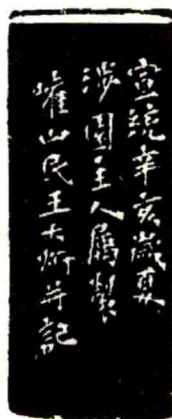 宣統辛亥歲夏
涉園主人屬製
嶊山民王大炘并記